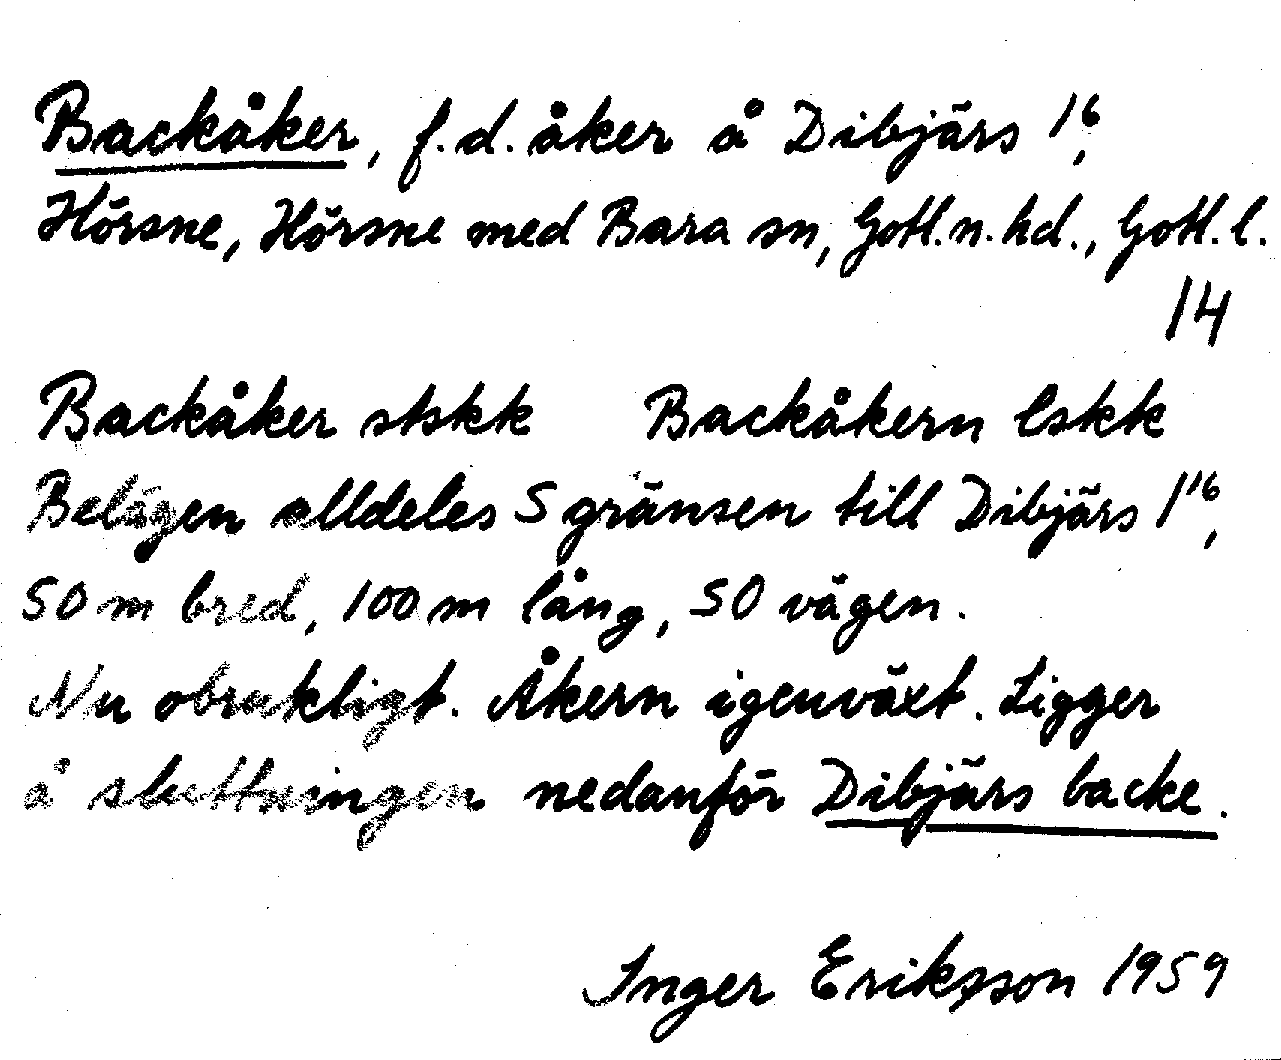 Backåker, f.d. åker å Dibjärs 1⁶,
Hörsne, Hörsne med Bara sn, Gotl.n.hd., Gotl.l.
14
Backåker stskk Backåkern lskk
Belägen alldeles S gränsen till Dibjärs 1¹⁶,
50 m bred, 100 m lång, SO vägen.
Nu obrukligt. Åkern igenväxt. Ligger
å sluttningen nedanför Dibjärs backe.
Inger Eriksson 1959